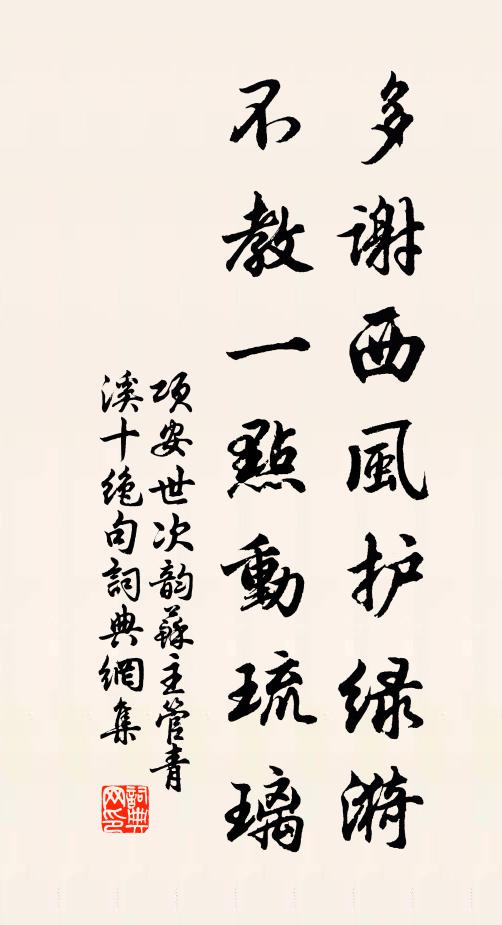 多謝西風护緑漪
不教一點動琉璃
项安世次韵蘇主管青
溪十绝句詞典網集
詞典网印